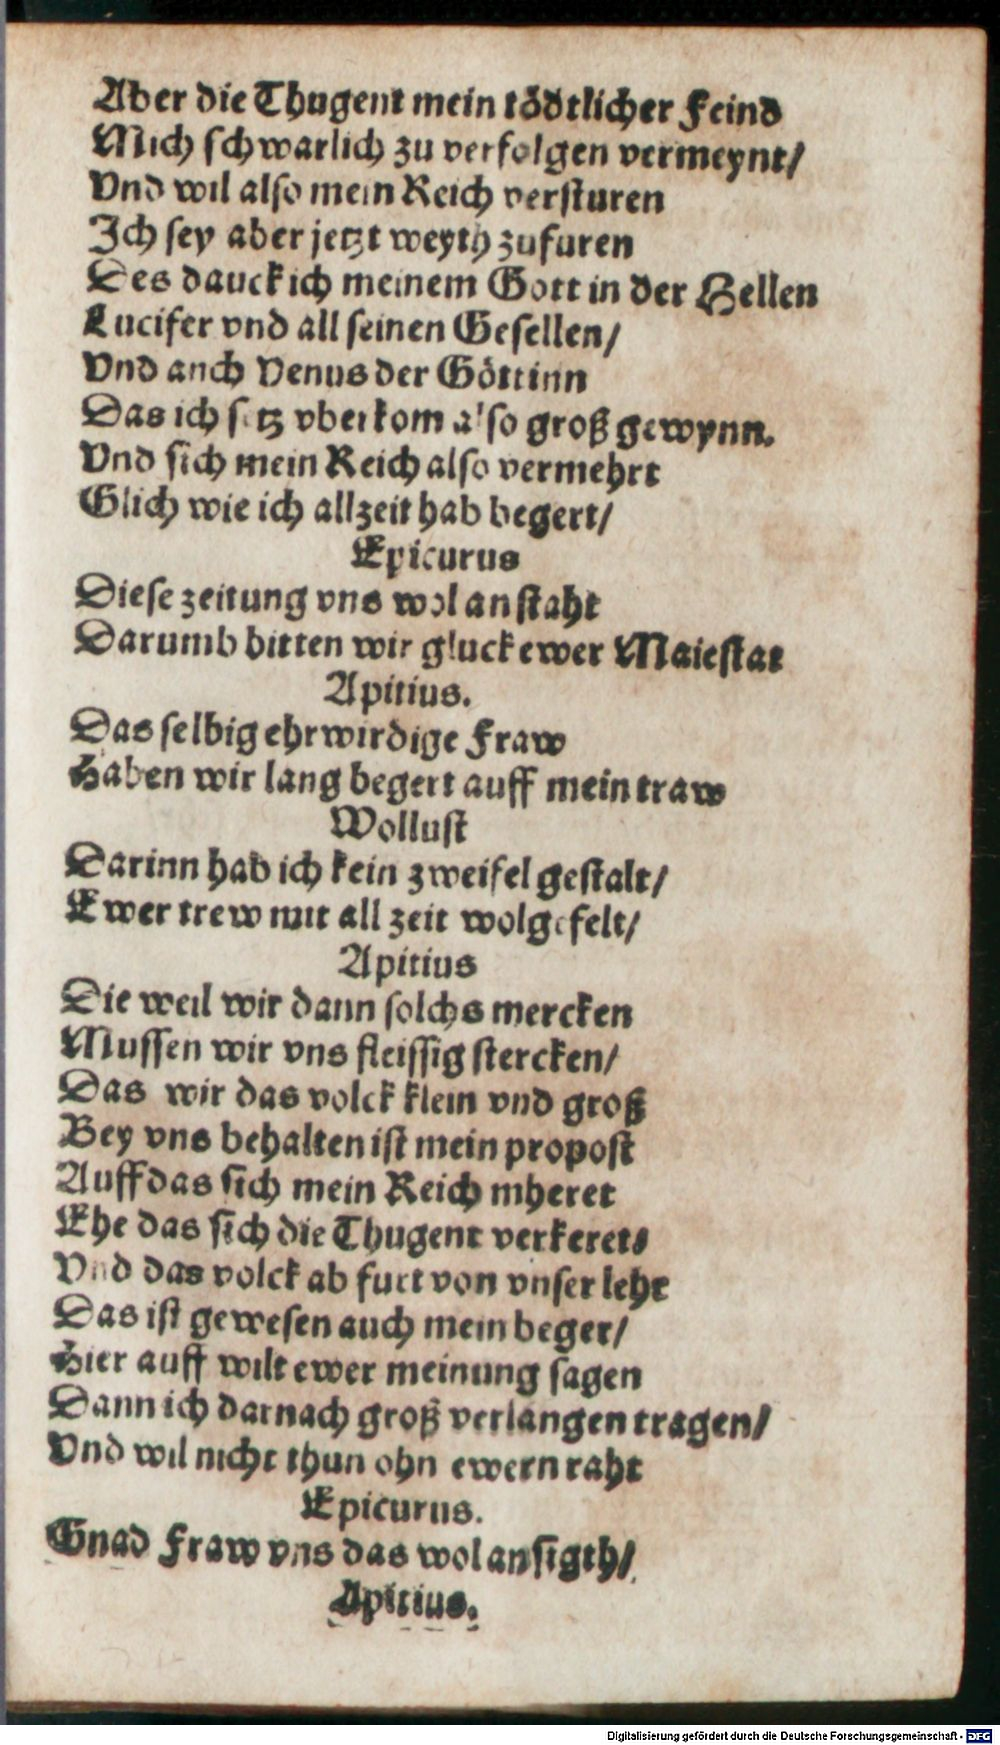 Aber die Thugent mein tödtlicher Feind
Mich schwarlich zu verfolgen vermeynt/
Vnd wil also mein Reich versturen
Ich sey aber jetzt weyth zufuren
Des dauck ich meinem Gott in der Hellen
Lucifer vnd all seinen Gesellen/
Vnd anch Venus der Göttinn
Das ich setz vberkom also groß gewynn.
Vnd sich mein Reich also vermehrt
Glich wie ich allzeit hab begert/
Epicurus
Diese zeitung vns wol anstaht
Darumb bitten wir gluck ewer Maiestat
Apitius.
Das selbig ehrwirdige Fraw
Haben wir lang begert auff mein traw
Wollust
Darinn hab ich kein zweifel gestalt/
Ewer trew mit all zeit wolgefelt/
Apitius
Die weil wir dann solchs mercken
Mussen wir vns fleissig stercken/
Das wir das volck klein vnd groß
Bey vns behalten ist mein propost
Auff das sich mein Reich mheret
Ehe das sich die Thugent verkeret/
Vnd das volck ab furt von vnser lehr
Das ist gewesen auch mein beger/
Hier auff wilt ewer meinung sagen
Dann ich darnach groß verlangen tragen/
Vnd wil nicht thun ohn ewern raht
Epicurus.
Gnad Fraw vns das wol ansigth/
Apitius.
Digitalisierung gefördert durch die Deutsche Forschungsgemeinschaft - DFG